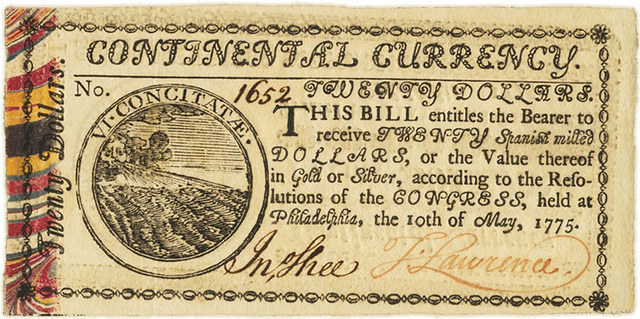 CONTINENTAL CURRENCY.
No. 1652 TWENTY DOLLARS.
THIS BILL entitles the Bearer to
receive TWENTY Spanish milled
DOLLARS, or the Value thereof
in Gold or Silver, according to the Reso-
lutions of the CONGRESS, held at
Philadelphia, the 10th of May, 1775.
VI·CONCITATÆ·
Twenty Dollars.
Jno Shee
J. Lawrence